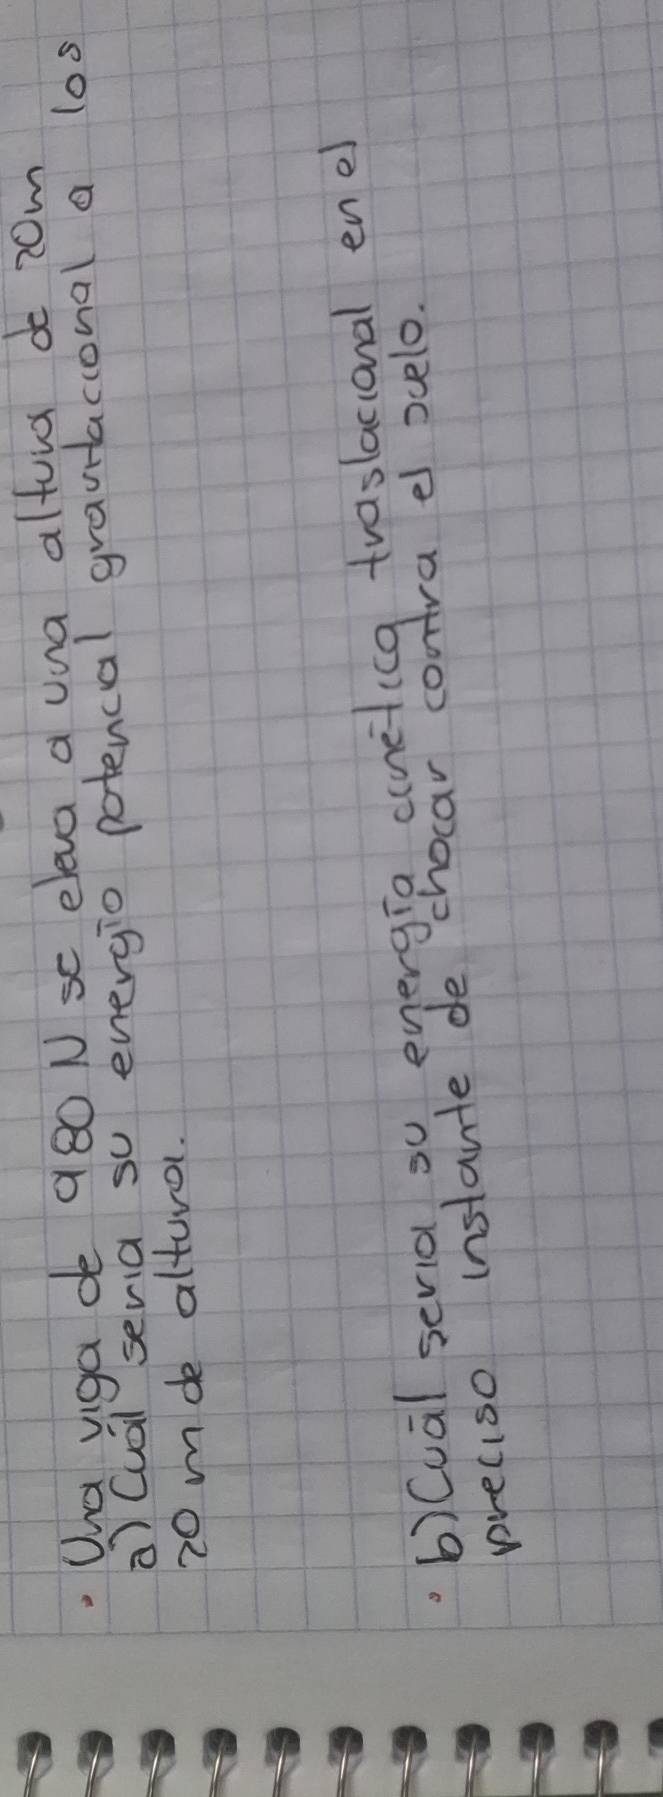 · Una viga de 980 N se eleva a una altura de 20m
a) Cuál seria su energío potencial gravitacional a los
20 m de altura.
· b) Cuál seria su energía cinética traslacional en el
preciso instante de chocar contra el suelo.